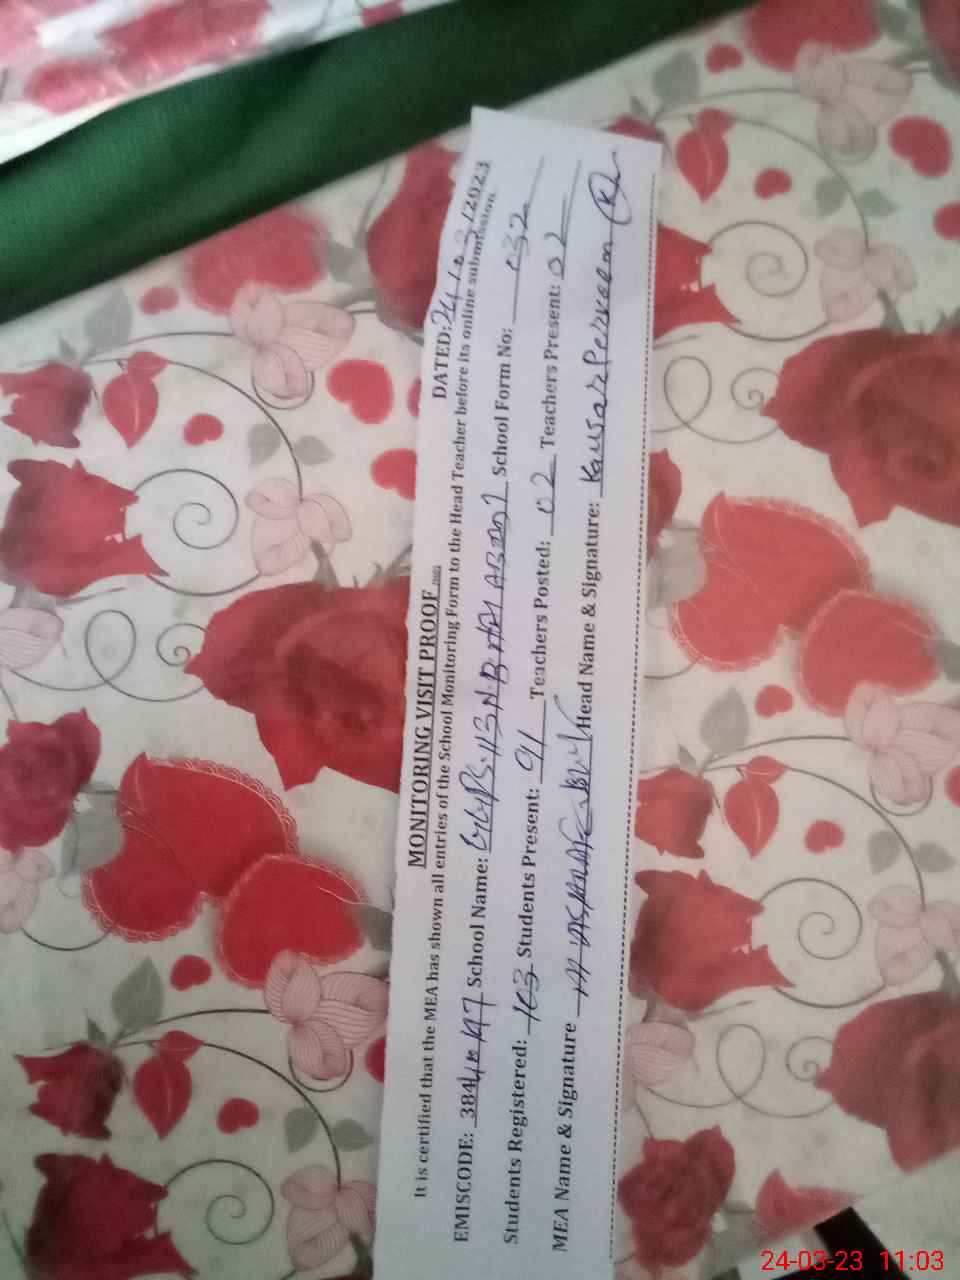 MONITORING VISIT PROOF DATED: 24/03/2023
It is certified that the MEA has shown all entries of the School Monitoring Form to the Head Teacher before its online submission.
EMISCODE: School Name: GGPS 113 N.B School Form No: 032
Students Registered: 103 Students Present: 91 Teachers Posted: 02 Teachers Present: 02
MEA Name & Signature Head Name & Signature: Kausar Perveen
24-03-23 11:03